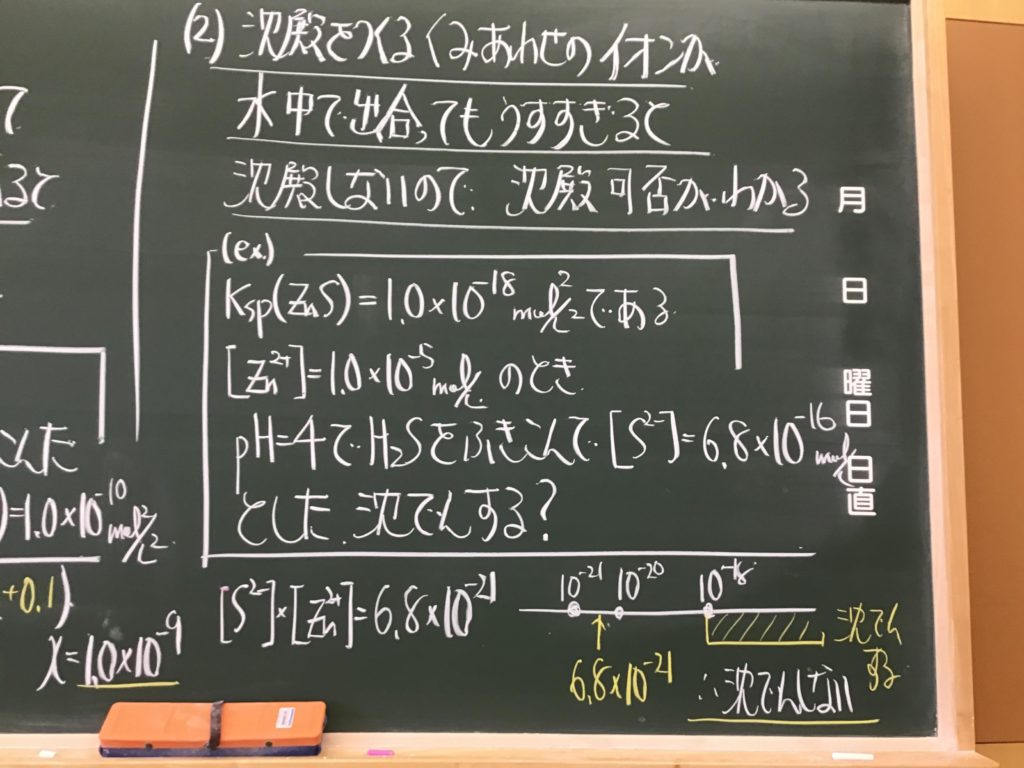 て
ると
んだ
)=1.0×10⁻¹⁰ mol²/L²
+0.1)
x=1.0×10⁻⁹
(2) 沈殿をつくるくみあわせのイオンが
水中で出合ってもうすすぎると
沈殿しないので、沈殿可否がわかる
(ex.)
Ksp(ZnS)=1.0×10⁻¹⁸ mol²/L²である
[Zn²⁺]=1.0×10⁻⁵ mol/L のとき
pH=4でH₂Sをふきこんで[S²⁻]=6.8×10⁻¹⁶ mol/L
とした.沈でんする?
[S²⁻]×[Zn²⁺]=6.8×10⁻²¹
10⁻²¹ 10⁻²⁰ 10⁻¹⁸
6.8×10⁻²¹
沈でん
する
∴沈でんしない
月
日
曜日
日直